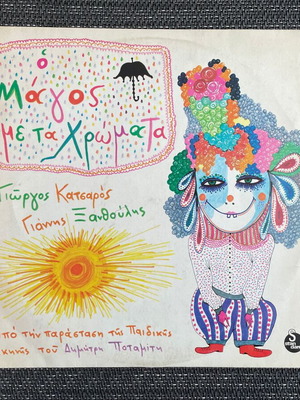 ὁ
Μάγος
με τα Χρώματα
Γιῶργος Κατσαρός
Γιάννης Ξανθούλης
πό τήν παράσταση τῆς Παιδικῆς
κηνῆς τοῦ Δημήτρη Ποταμίτη